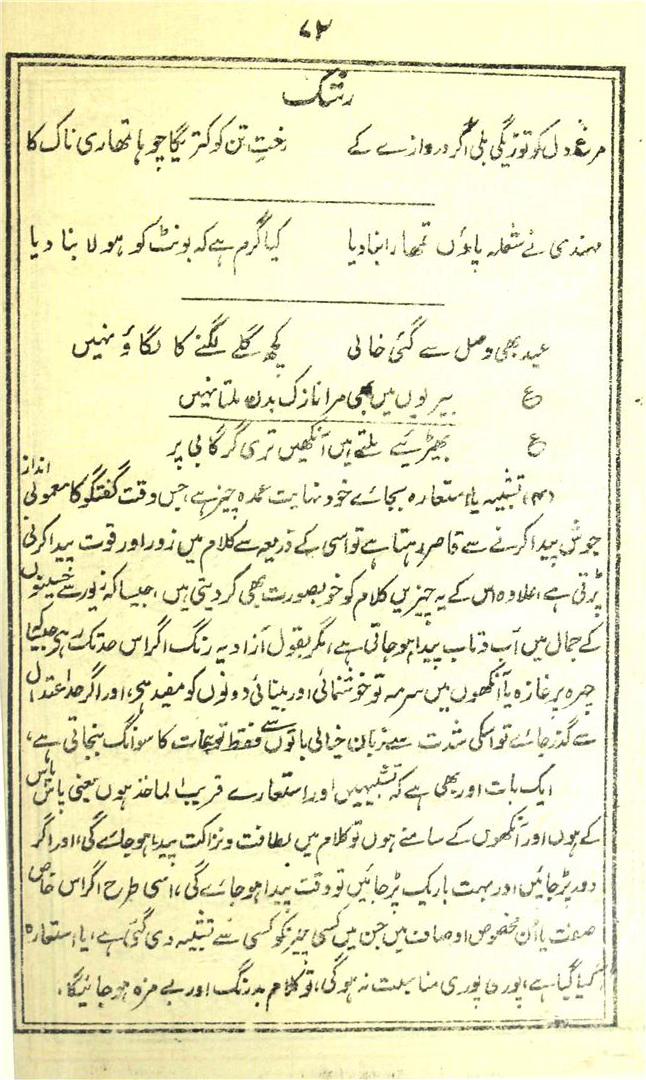 ۷۲
رشک
مرغِ دل کو توڑیگی بلی اگر دروازے کے رختِ تن کو کتریگا چوہا تمھاری ناک کا
مہندی نے شعلہ پاؤں تمھارا بنا دیا کیا گرم ہے کہ بونٹ کو ہولا بنا دیا
عید بھی وصل سے گئی خالی کچھ گلے لگنے کا لگاؤ نہیں
ع بیریوں میں بھی مرا نازک بدن ملتا نہیں
ع بھیڑیئے ملتے ہیں آنکھیں تری گرگابی پر
(۴) تشبیہ یا استعارہ بجائے خود نہایت عمدہ چیز ہے، جس وقت گفتگو کا معمولی انداز
جوش پیدا کرنے سے قاصر رہتا ہے تو اسی کے ذریعہ سے کلام میں زور اور قوت پیدا کرنی
پڑتی ہے، علاوہ اس کے یہ چیزیں کلام کو خوبصورت بھی کر دیتی ہیں، جیسا کہ زیور سے حسینوں
کے جمال میں آب و تاب پیدا ہو جاتی ہے، مگر بقول آزاد یہ رنگ اگر اس حد تک رہے جیسا کہ
چہرہ پر غازہ یا آنکھوں میں سرمہ تو خوشنمائی اور بینائی دونوں کو مفید ہے، اور اگر حد اعتدال
سے گذر جائے تو اسکی شدت سے زبان خیالی باتوں سے فقط توہمات کا سوانگ بنجاتی ہے،
ایک بات اور بھی ہے کہ تشبیہیں اور استعارے قریب الماخذ ہوں یعنی پاس پاس
کے ہوں اور آنکھوں کے سامنے ہوں تو کلام میں لطافت و نزاکت پیدا ہو جائے گی، اور اگر
دور پڑ جائیں اور بہت باریک پڑ جائیں تو دقت پیدا ہو جائے گی، اسی طرح اگر اس خاص
صفت یا اُن مخصوص اوصاف میں جن میں کسی چیز کو کسی سے تشبیہ دی گئی ہے، یا استعارہ
کیا گیا ہے، پوری پوری مناسبت نہ ہوگی، تو کلام بدرنگ اور بے مزہ ہو جائیگا۔